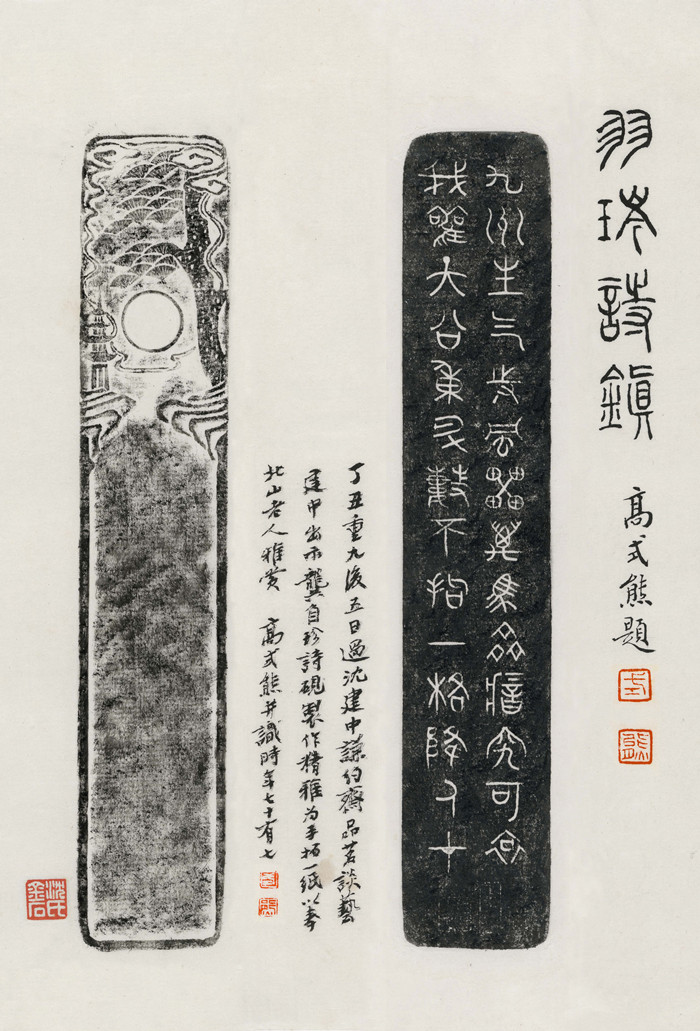 羽琌詩鎮
髙式熊題
式
熊
九州生气恃風靁萬馬齊瘖究可哀
我勸天公重抖擻不拘一格降人才
丁丑重九後五日過沈建中謙約齋品茗談藝
建中出示龔自珍詩硯製作精雅為手拓一紙以奉
北山老人雅賞 髙式熊并識時年七十有七
式
熊
沈氏金石